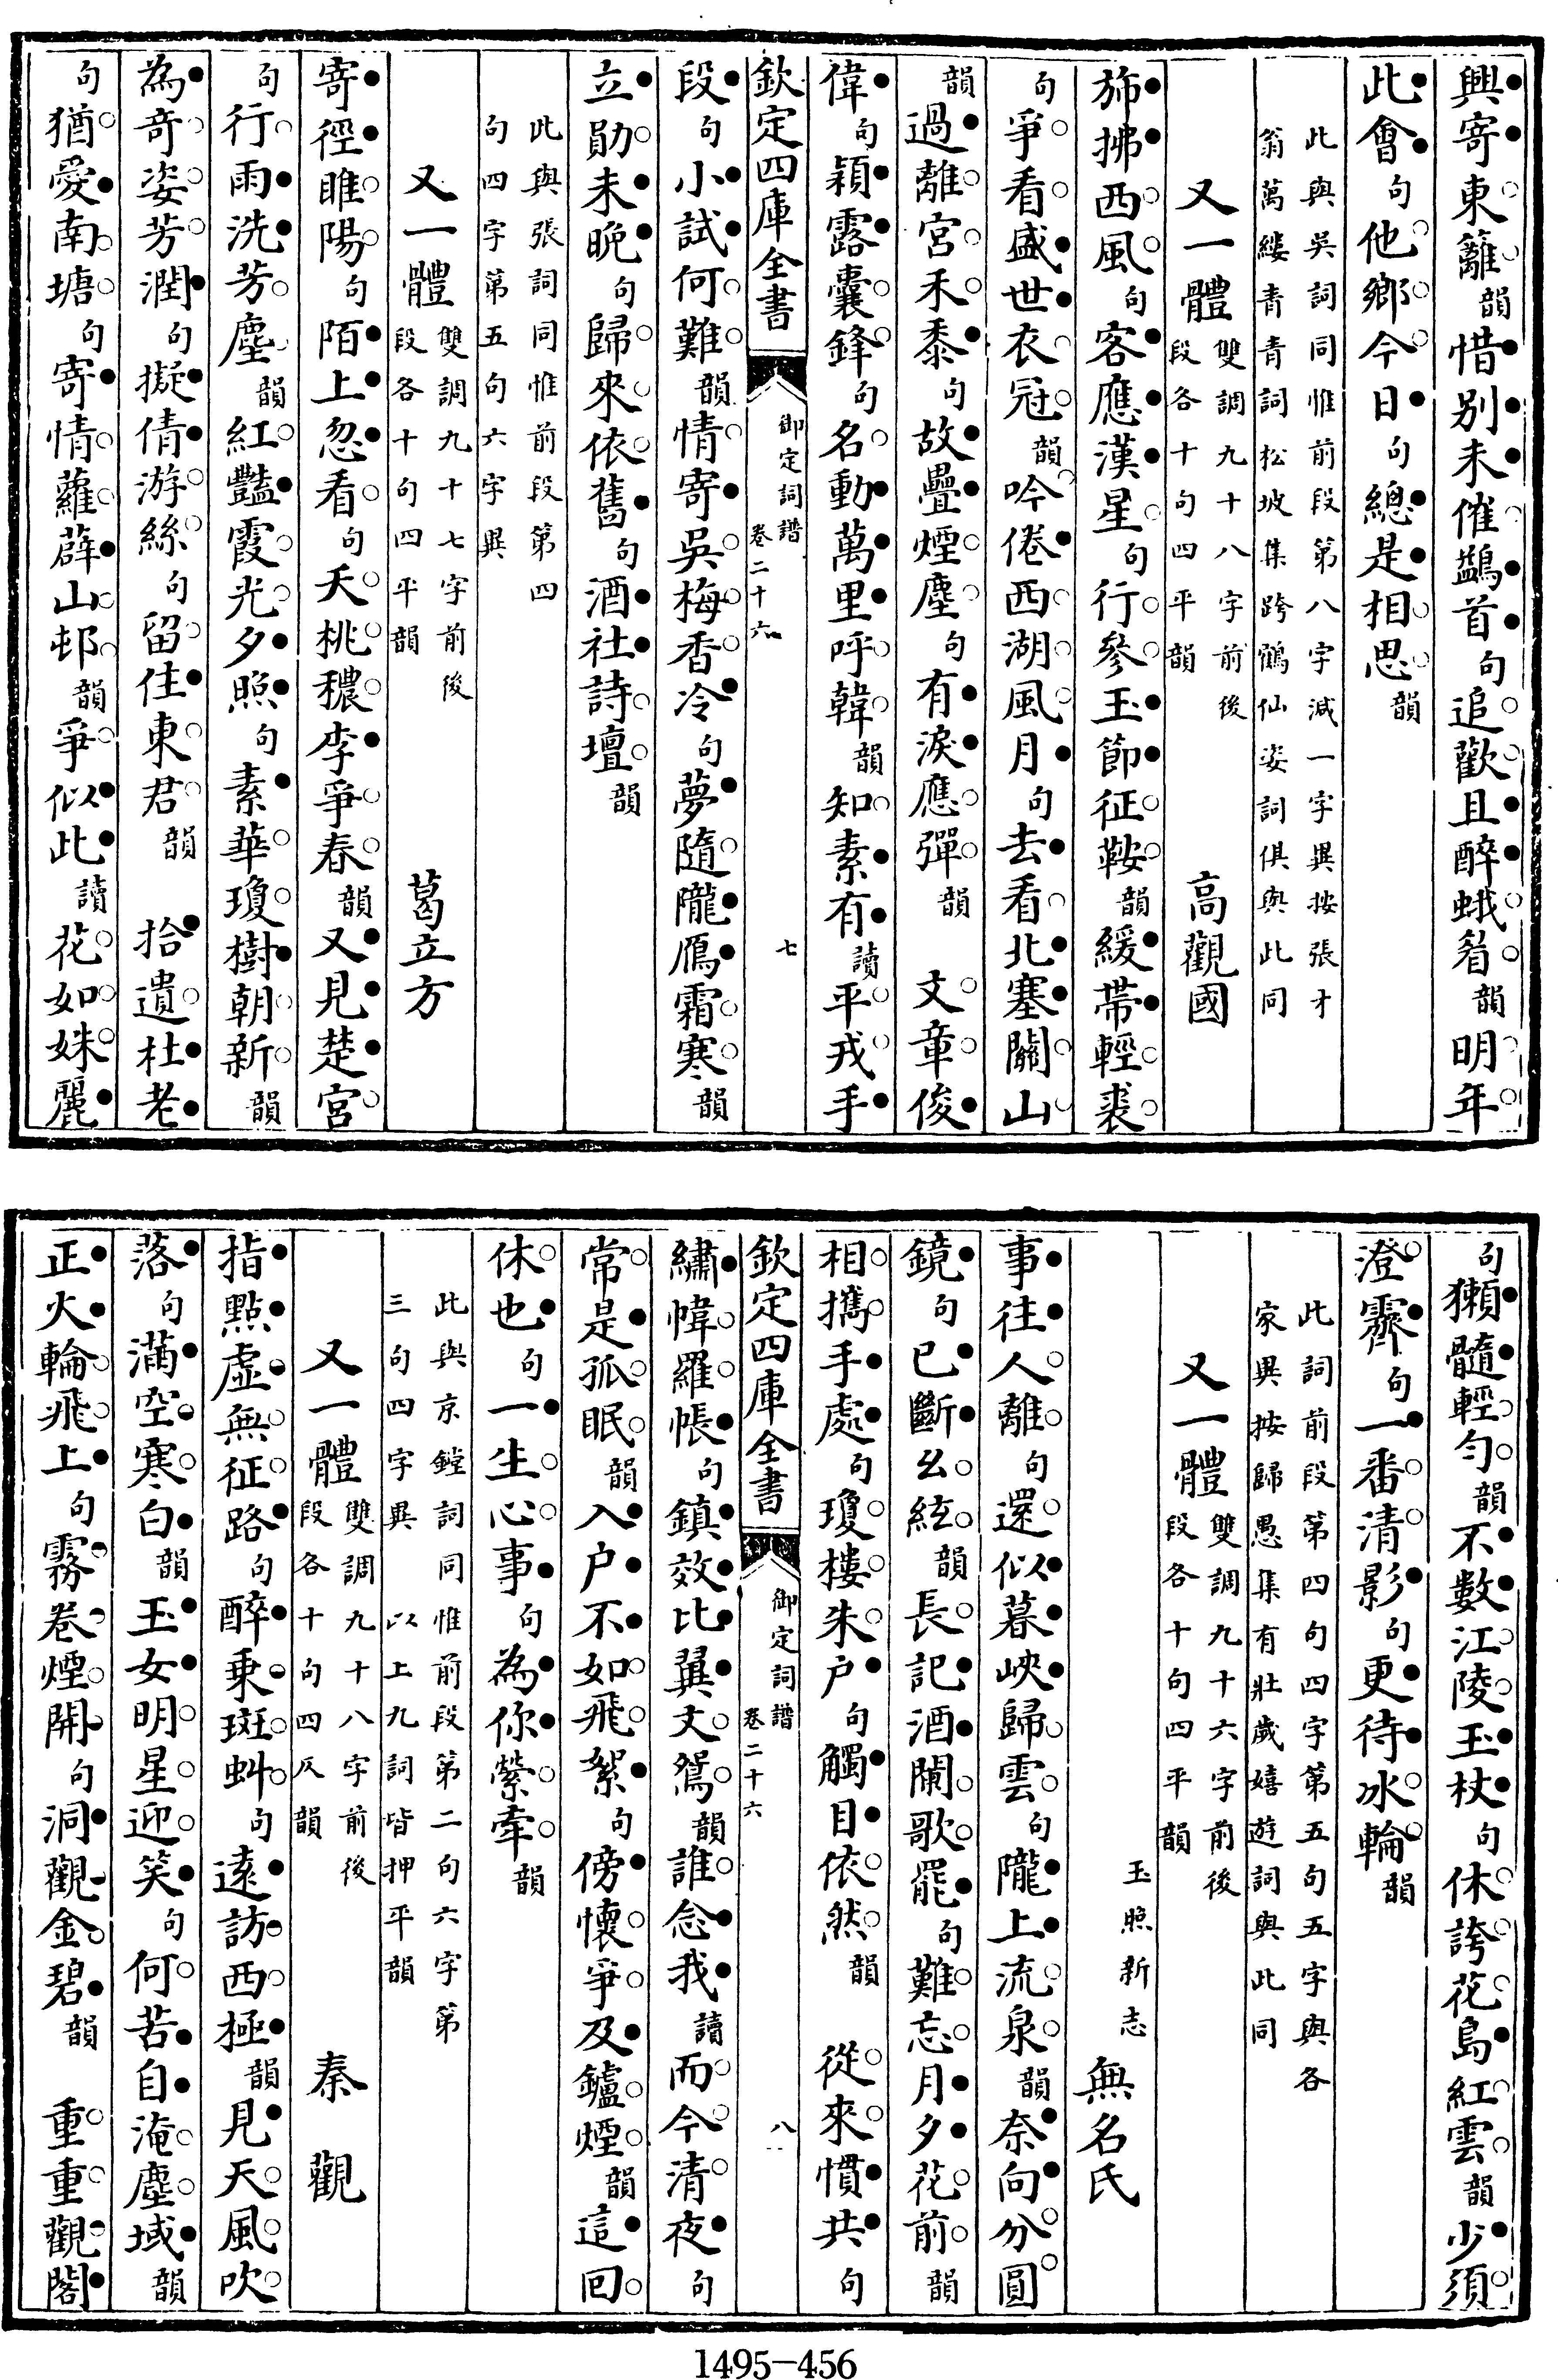 興寄東籬韻惜別未催鷁首句追歡且醉蛾眉韻明年
此會句他鄉今日句總是相思韻
此與吳詞同惟前段第八字減一字異按張才
翁萬縷青青詞松坡集跨鶴仙姿詞俱與此同
又一體雙調九十八字前後段各十句四平韻 高觀國
斾拂西風句客應漢星句行參玉節征鞍韻緩帶輕裘
句爭看盛世衣冠韻吟倦西湖風月句去看北塞關山
韻過離宮禾黍句故疊煙塵句有淚應彈韻 文章俊
偉句穎露囊鋒句名動萬里呼韓韻知素有讀平戎手
欽定四庫全書 御定詞譜 卷二十六 七
段句小試何難韻情寄吳梅香冷句夢隨隴鴈霜寒韻
立勛未晚句歸來依舊句酒社詩壇韻
此與張詞同惟前段第四
句四字第五句六字異
又一體雙調九十七字前後段各十句四平韻 葛立方
寄徑睢陽句陌上忽看句夭桃穠李爭春韻又見楚宮
句行雨洗芳塵韻紅豔霞光夕照句素華瓊樹朝新韻
為奇姿芳潤句擬倩游絲句留住東君韻 拾遺杜老
句猶愛南塘句寄情蘿薜山邨韻爭似此讀花如姝麗
句獺髓輕勻韻不數江陵玉杖句休誇花島紅雲韻少須
澄霽句一番清影句更待冰輪韻
此詞前段第四句四字第五句五字與各
家異按歸愚集有壯歲嬉遊詞與此同
又一體雙調九十六字前後段各十句四平韻
玉照新志 無名氏
事往人離句還似暮峽歸雲句隴上流泉韻奈向分圓
鏡句已斷幺絃韻長記酒闌歌罷句難忘月夕花前韻
相攜手處句瓊樓朱户句觸目依然韻 從來慣共句
欽定四庫全書 御定詞譜 卷二十六 八
繡幃羅帳句鎮效比翼文鴛韻誰念我讀而今清夜句
常是孤眠韻入户不如飛絮句傍懷爭及鑪煙韻這回
休也句一生心事句為你縈牽韻
此與京鏜詞同惟前段第二句六字第
三句四字異 以上九詞皆押平韻
又一體雙調九十八字前後段各十句四仄韻 秦觀
指點虛無征路句醉乗斑虯句遠訪西極韻見天風吹
落句滿空寒白韻玉女明星迎笑句何苦自淹塵域韻
正火輪飛上句霧卷煙開句洞觀金碧韻 重重觀閣
1495-456